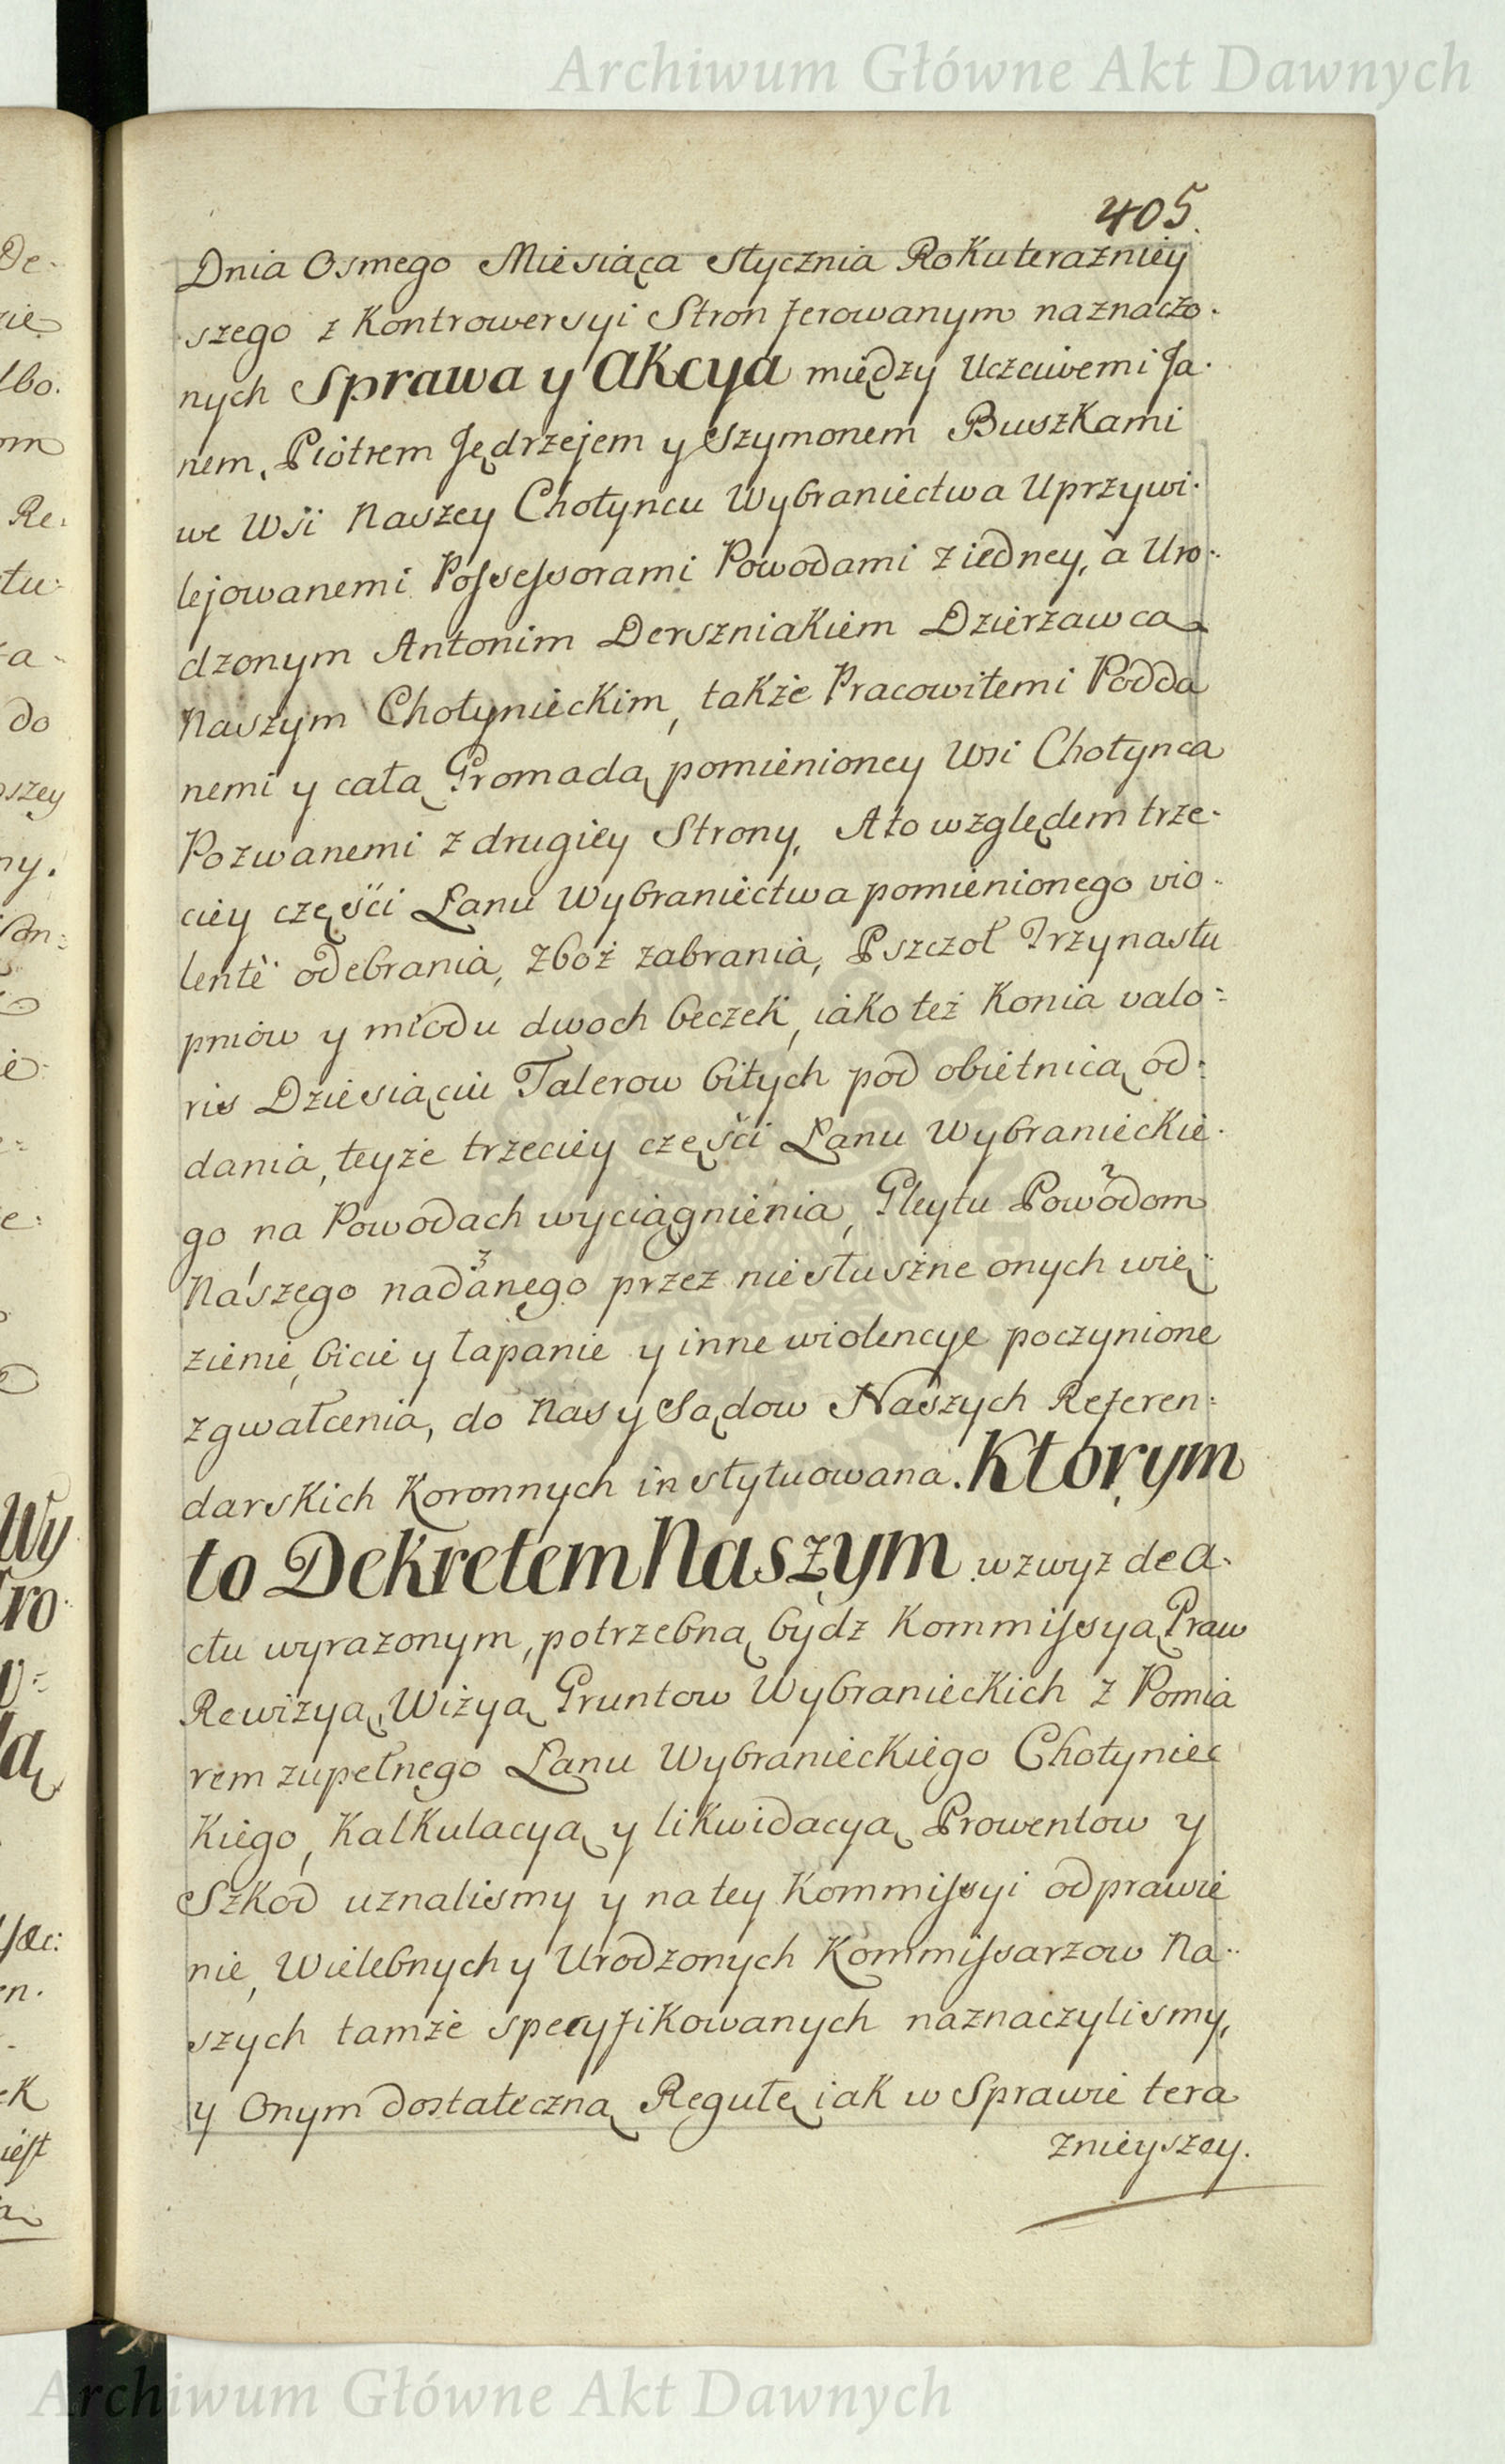 Archiwum Główne Akt Dawnych
405.
Dnia Osmego Miesiąca Stycznia Roku teraźniey
szego z Kontrowersyi Stron ferowanym naznaczo-
nych Sprawa y Akcya między Uczciwemi Ja-
nem, Piotrem Jędrzejem y Szymonem Buszkami
we Wsi Naszey Chotyncu Wybraniectwa Uprzywi-
lejowanemi Possessorami Powodami z iedney, a Uro-
dzonym Antonim Derszniakiem Dzierżawcą
Naszym Chotynieckim, także Pracowitemi Podda
nemi y całą Gromadą pomienioney Wsi Chotynca
Pozwanemi z drugiey Strony, A to względem trze-
ciey części Łanu Wybraniectwa pomienionego vio-
lentè odebrania, zboż zabrania, Pszczoł Trzynastu
pniow y miodu dwoch beczek, iako też Konia valo-
ris Dziesiąciu Talerow bitych pod obietnicą od-
dania, teyże trzeciey części Łanu Wybranieckie-
go na Powodach wyciągnienia, Gleytu Powodom
2
Naszego nadanego przez niesłuszne onych wię-
1 3
zienie, bicie y łapanie y inne wiolencye poczynione
zgwałcenia, do Nas y Sądow Naszych Referen-
darskich Koronnych instytuowana. Ktorym
to Dekretem Naszym wzwyz de a-
ctu wyrazonym, potrzebną bydz Kommissyą Praw
Rewizyą, Wizyą Gruntow Wybranieckich z Pomia
rem zupełnego Łanu Wybranieckiego Chotyniec
kiego, Kalkulacyą y likwidacyą Prowentow y
Szkod uznalismy y na tey Kommissyi odprawie
nie, Wielebnych y Urodzonych Kommissarzow Na-
szych tamże specyfikowanych naznaczylismy,
y Onym dostateczną Regułę iak w Sprawie tera
znieyszey.
Archiwum Główne Akt Dawnych